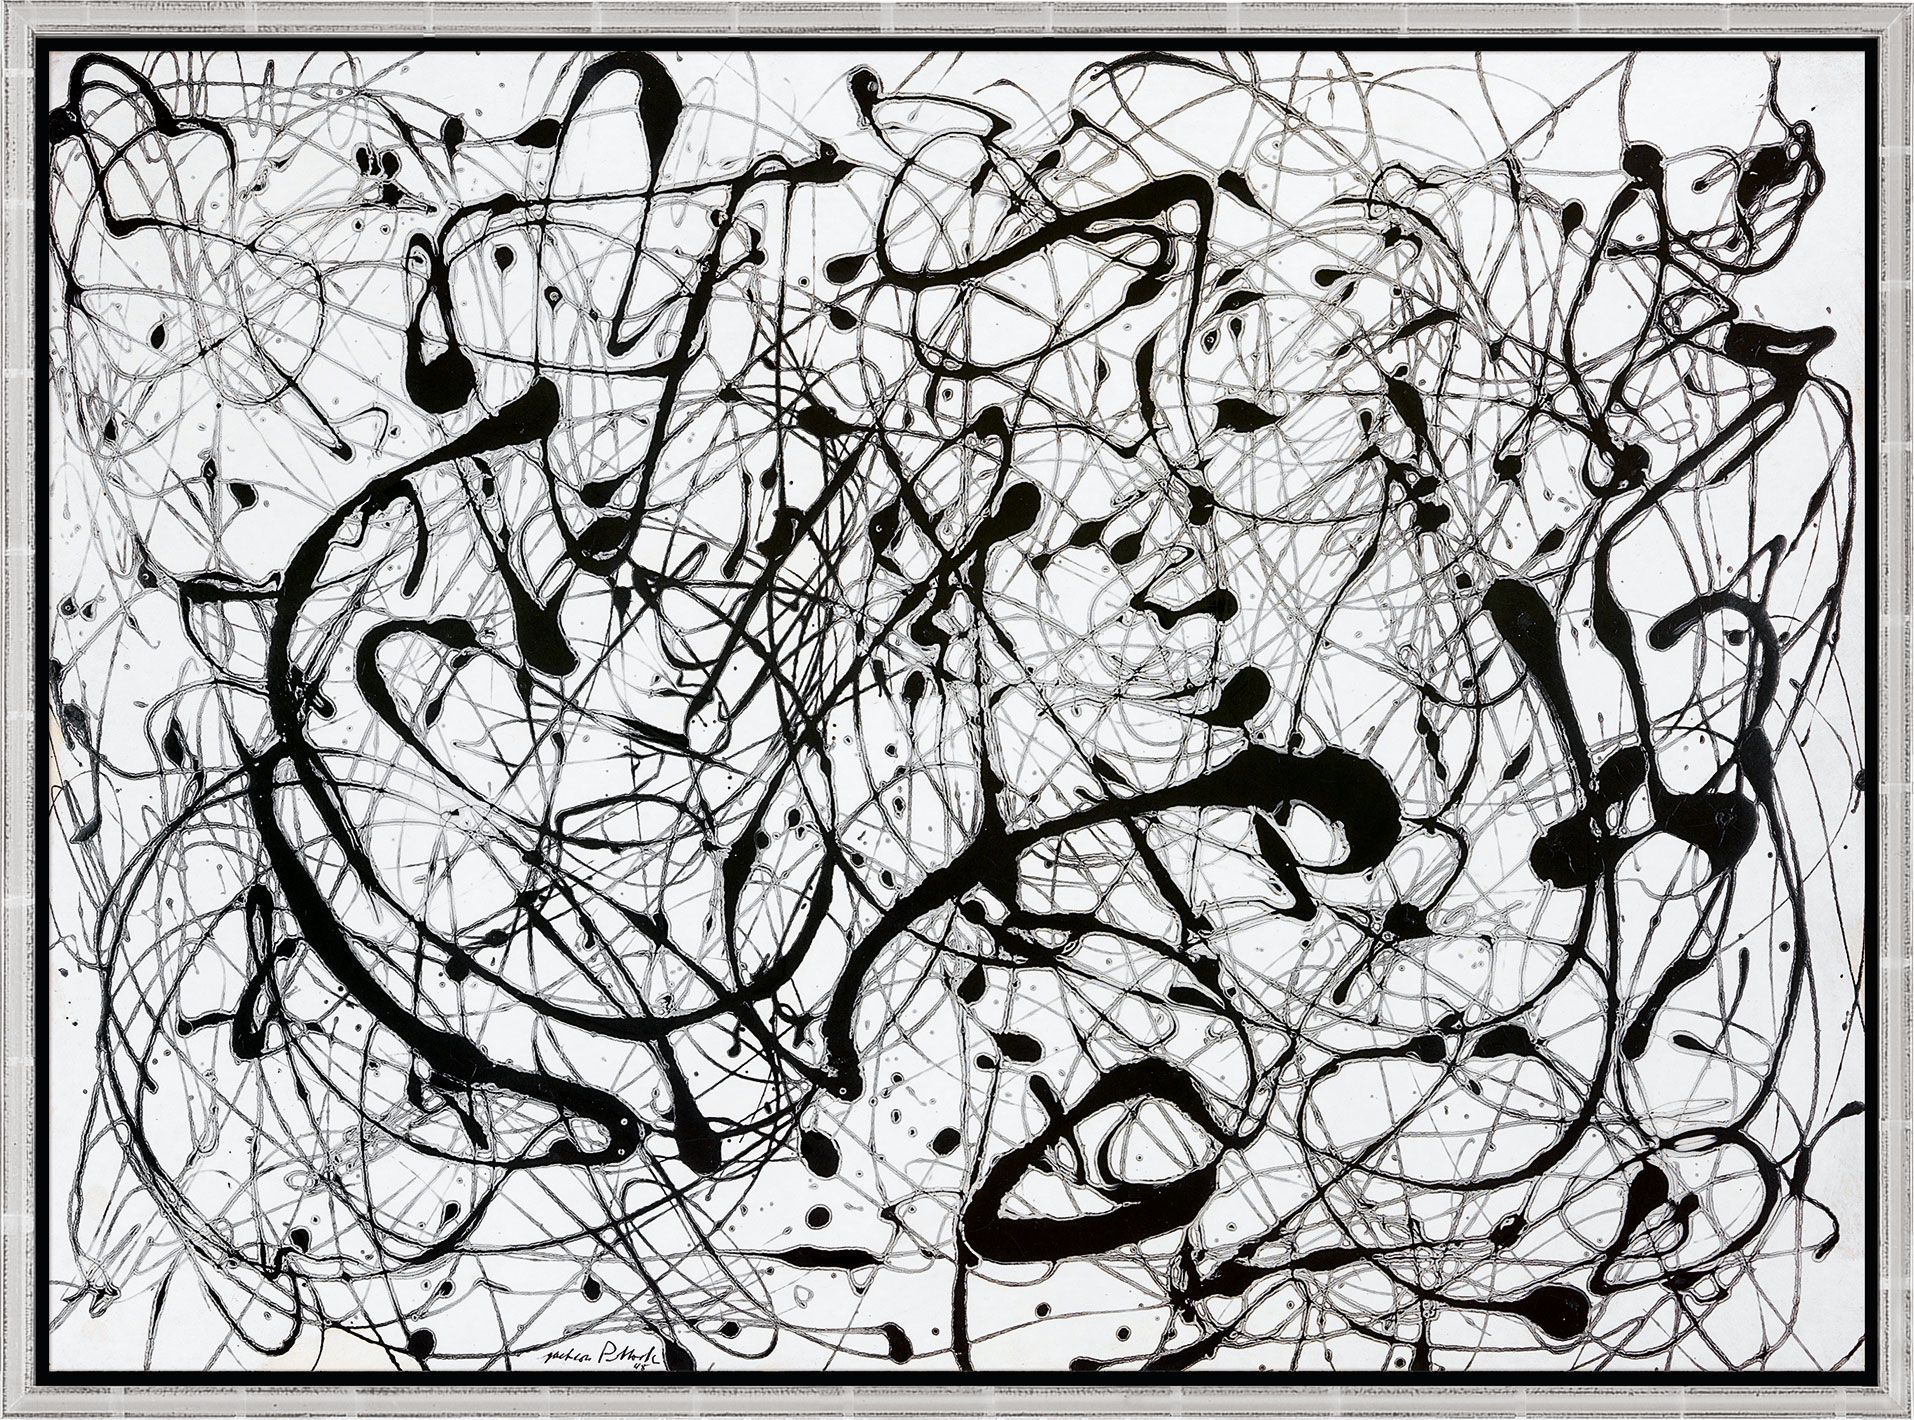 Jackson Pollock
'48